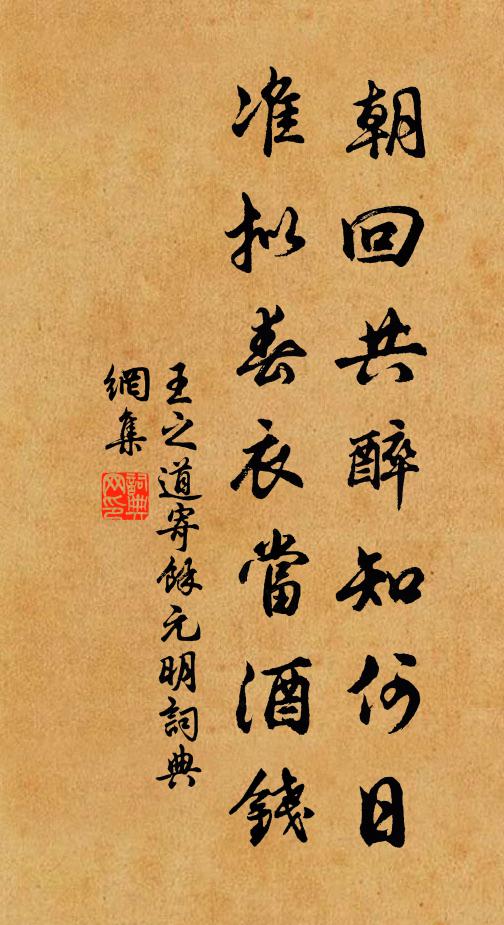 朝回共醉知何日
准拟春衣當酒錢
王之道寄餘元明詞典
網集
詞典
网印